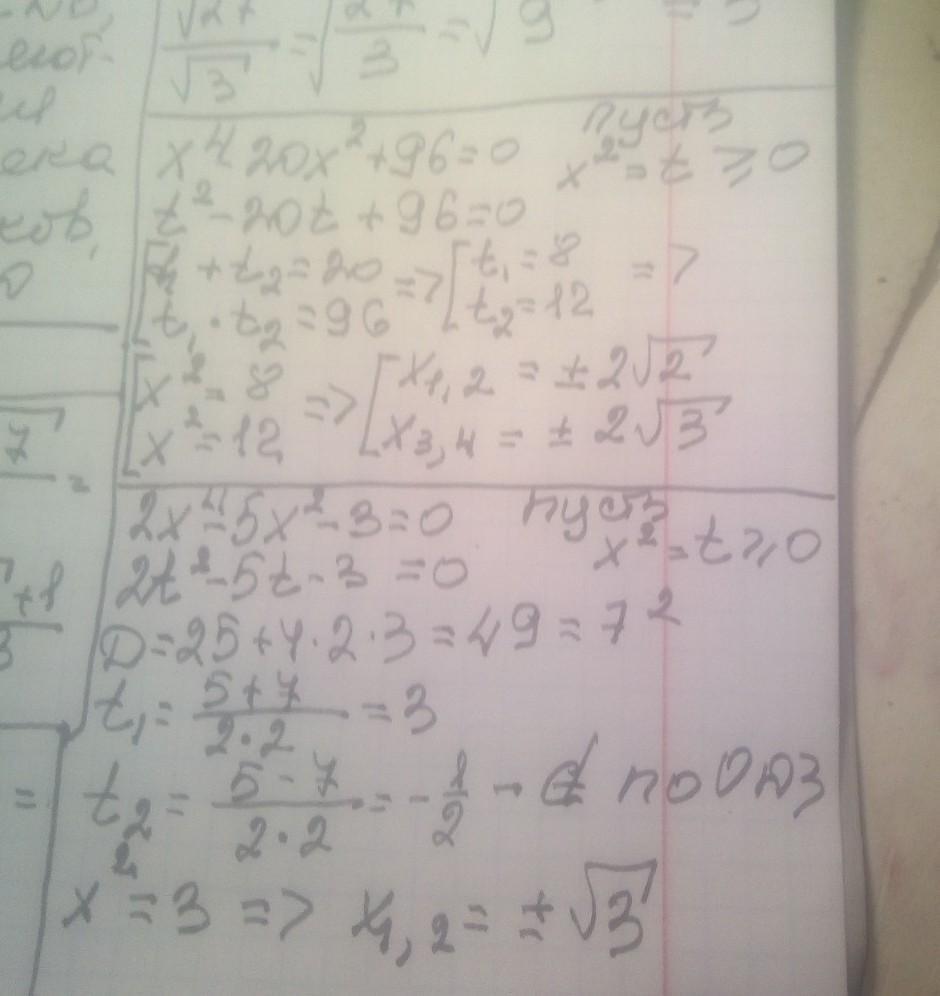 √27/√3 = √27/3 = √9 = 3
x⁴ 20x² + 96 = 0 пусть
x² = t ≥ 0
t² - 20t + 96 = 0
[t₁ + t₂ = 20
t₁ · t₂ = 96 => [t₁ = 8
t₂ = 12 =>
[x² = 8
x² = 12 => [x₁,₂ = ± 2√2
x₃,₄ = ± 2√3
2x⁴ - 5x² - 3 = 0 пусть
x² = t ≥ 0
2t² - 5t - 3 = 0
D = 25 + 4 · 2 · 3 = 49 = 7²
t₁ = (5 + 7)/(2 · 2) = 3
t₂ = (5 - 7)/(2 · 2) = -1/2 - ∉ по ОДЗ
x² = 3 => x₁,₂ = ± √3